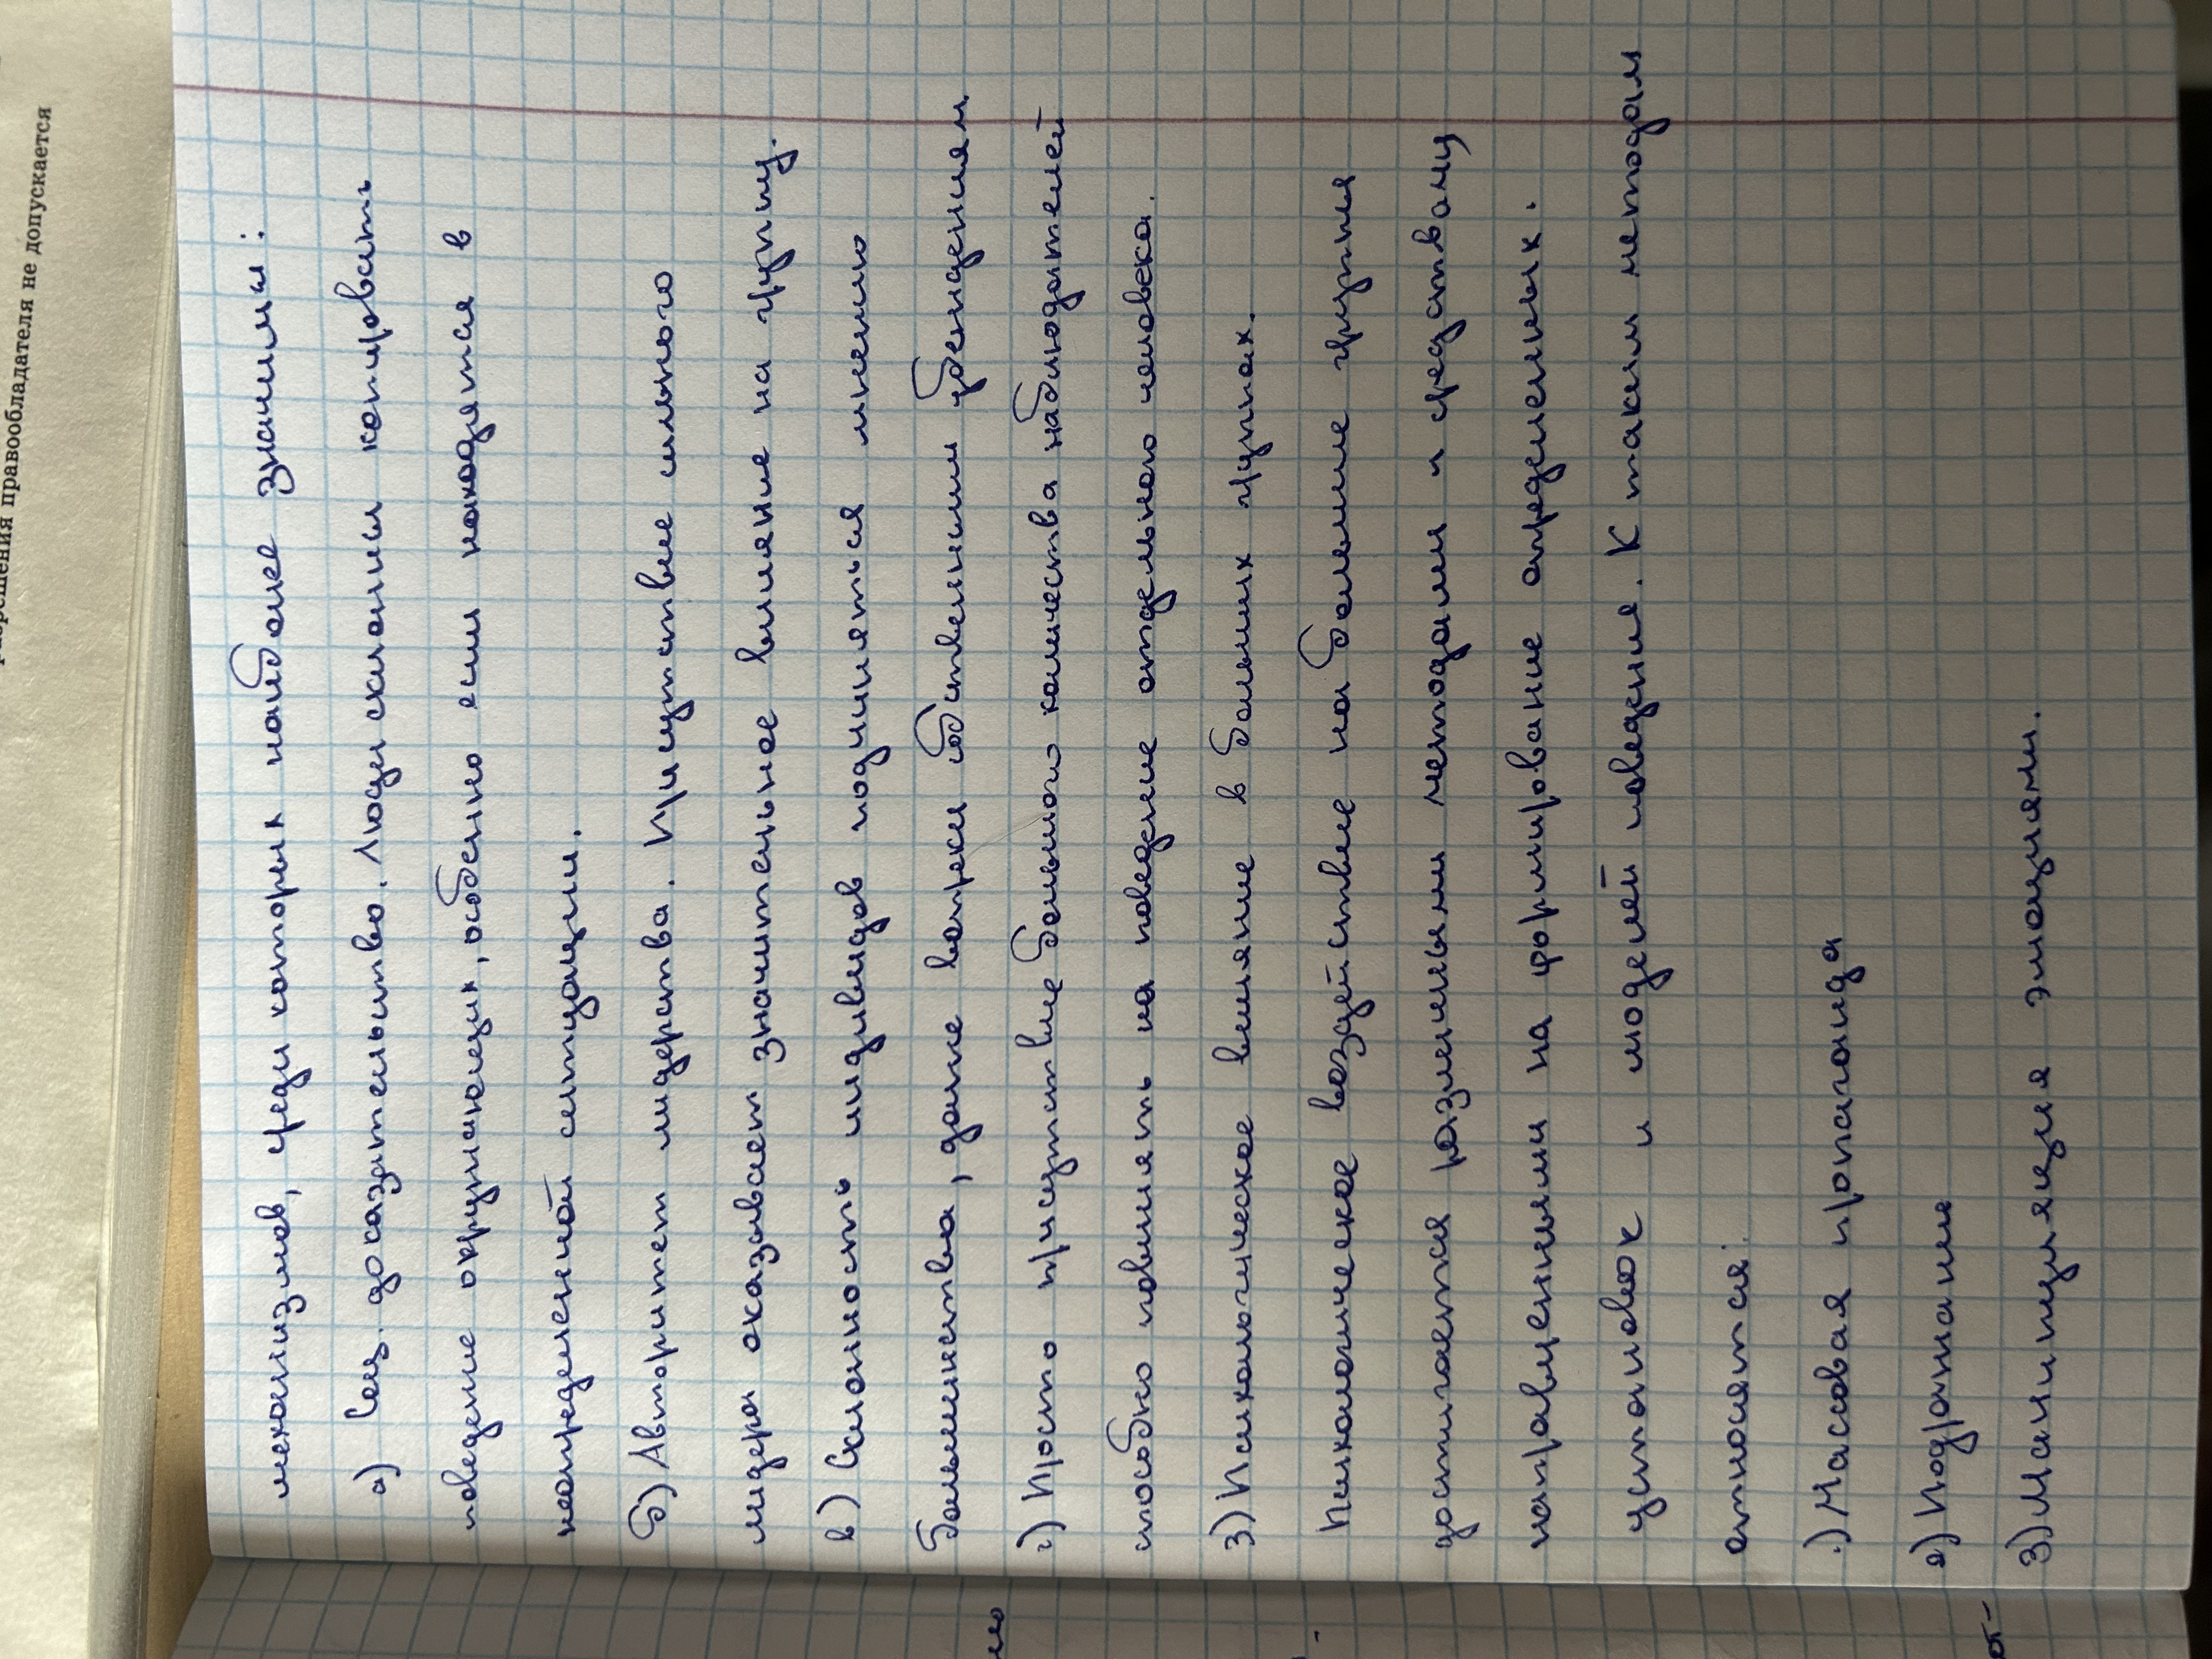 разрешения правообладателя не допускается
механизмов, среди которых наиболее значимы:
а) Соц. доказательство. Люди склонны копировать
поведение окружающих, особенно если находятся в
неопределенной ситуации.
б) Авторитет лидерства. Присутствие сильного
лидера оказывает значительное влияние на группу.
в) Склонность индивидов подчиняться мнению
большинства, даже вопреки собственным убеждениям
г) Просто присутствие большого количества наблюдателей
способно повлиять на поведение отдельного человека.
3) Психологическое влияние в больших группах.
Психологическое воздействие на большие группы
достигается различными методами и средствами
направленными на формирование определенных.
установок и моделей поведения. К таким методам
относятся:
1) Массовая пропаганда
2) Подражание
3) Манипуляция эмоциями.